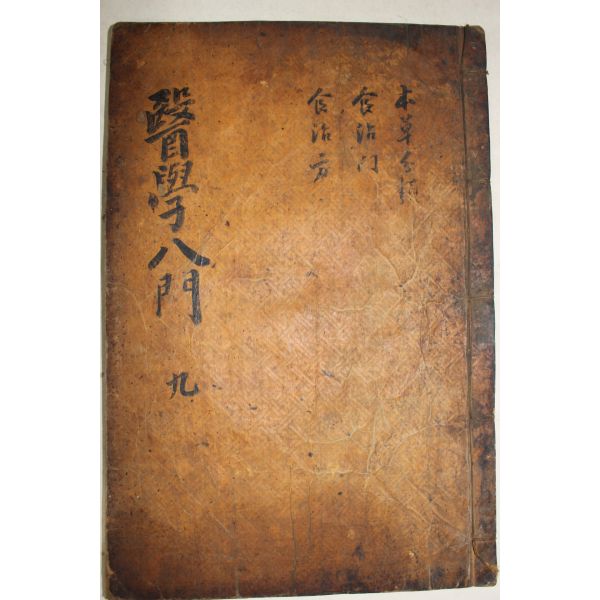 本草分類
食治门
食治方
醫學入門
九